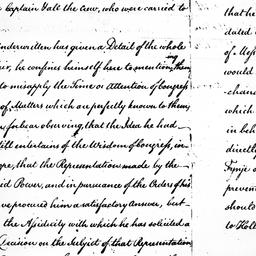 Captain Yall the Crew, who were carried to
Underwritten has given a Detail of the whole
he confines himself here to mention, my them
to misapply the Time or Attention of Congress
of Matters which are perfectly known to them,
forbear observing, that the Idea he had
still entertains of the Wisdom of Congress, in
that the Representations made by the
Power, and in pursuance of the Orders of his
procured him a satisfactory Answer, but
the Assiduity with which he has solicited a
Decision on the Subject of that Representation
that he
dated
would
which
in beh
directly
prevent
should